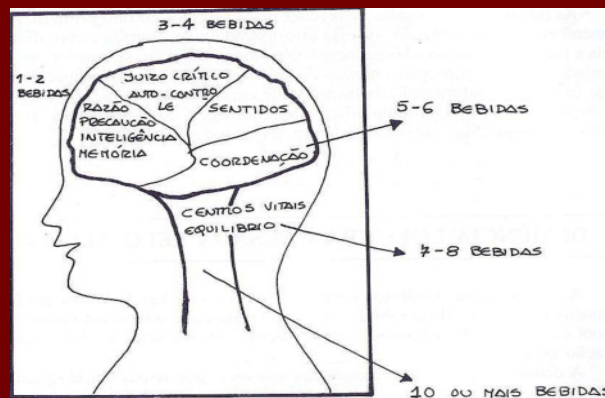 3-4 BEBIDAS
1-2
BEBIDAS
JUIZO CRÍTICO
AUTO-CONTRO
LE
RAZÃO
PRECAUÇÃO
INTELIGÊNCIA
MEMÓRIA
SENTIDOS
5-6 BEBIDAS
COORDENAÇÃO
CENTROS VITAIS
EQUILIBRIO
7-8 BEBIDAS
10 OU MAIS BEBIDAS